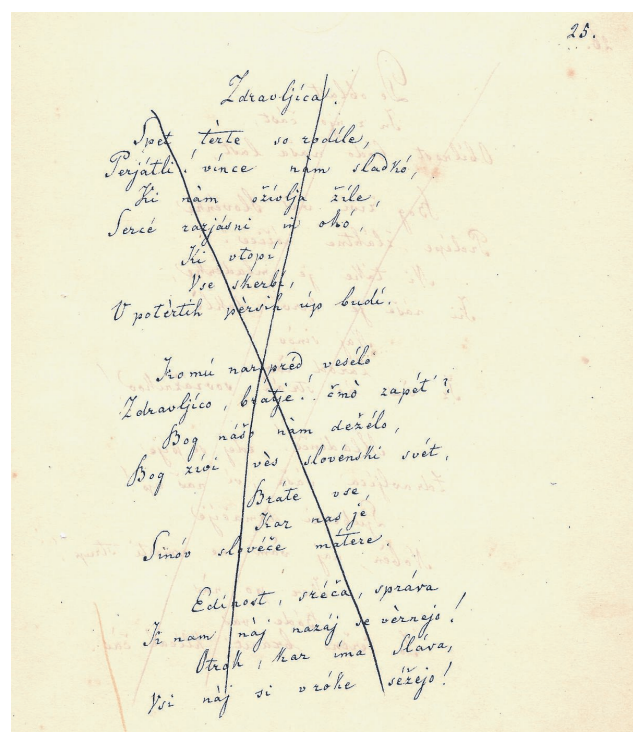 25.
Zdravljíca.
Spet tèrte so rodíle,
Perjátli! vínce nàm sladkó,
Ki nàm ožívlja žíle,
Sercé razjásni in okó,
Ki vtopí
Vse skerbí,
V potèrtih pèrsih úp budí.
Komú narpréd vesélo
Zdravljíco, brátje! čmò zapét'?
Bog nášo nàm dežélo,
Bog žívi vès slovénski svét,
Bráte vse,
Kar nas je
Sinóv slovéče mátere.
Edínost, sréča, správa
K nam nàj nazáj se vèrnejo!
Otrók, kar ima Sláva,
Vsi nàj si v róke séžejo!